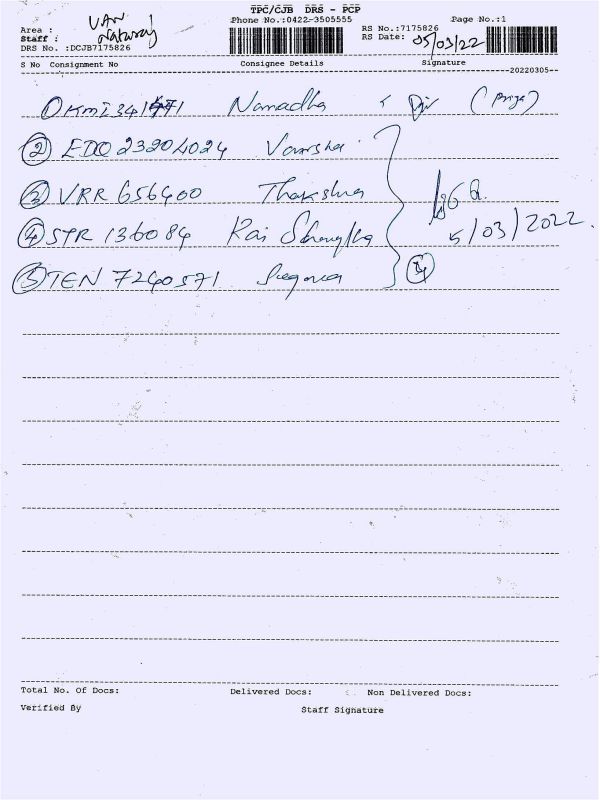 TPC/CJB DRS - PCP
Area : VAN Phone No.:0422-3505555 RS No.:7175826 Page No.:1
Staff : Nataraj RS Date: 05/03/22
DRS No. :DCJB7175826
S No Consignment No Consignee Details Signature
--20220305--
① KMI 341 Namadha (Priya)
② EDQ 23204024 Varsha
③ VRR 656400 Thakshna
④ STR 136084 Rai
5/03/2022
④
⑤ TEN 7240571
Total No. Of Docs: Delivered Docs: Non Delivered Docs:
Verified By Staff Signature